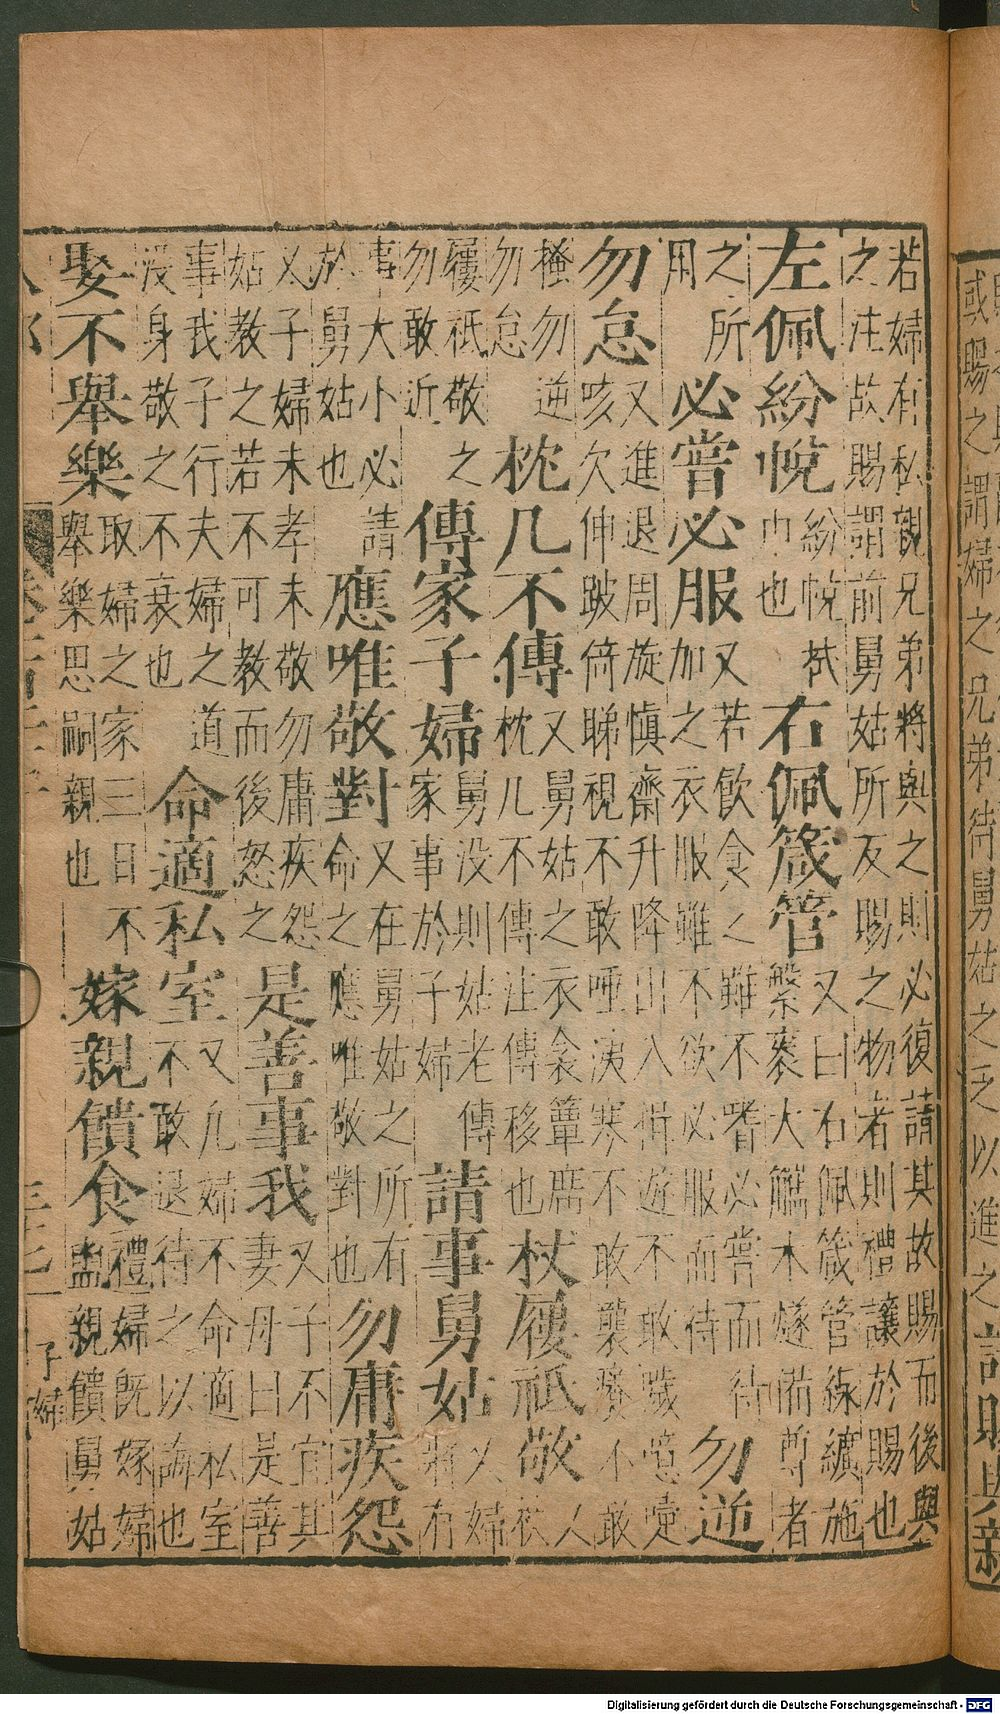 或賜之謂婦之兄弟待舅姑之乏以進之
若婦有私親兄弟將與之則必復請其故賜而後與
之注故賜謂前舅姑所友賜之物者則禮讓於賜也
左佩紛帨 紛帨拭巾也 右佩箴管 又曰右佩箴管線纊施縏袠大觿木燧階尊者
之所用 必嘗必服 又若飲食之雖不耆必嘗而待加之衣服雖不欲必服而待 勿逆
勿怠 又進退周旋慎齋升降出入揖遊不敢噦噫嚏咳欠伸跛倚睇視不敢唾洟寒不敢襲癢不敢
搔勿逆勿怠 枕几不傳 又舅姑之衣衾簟席枕几不傳注傳移也 杖屨祇敬 人杖
屨祇敬之勿敢近 傳家子婦 舅没則姑老傳家事於子婦 請事舅姑 又婦將有
事大小必請於舅姑也 應唯敬對 又在舅姑之所有命之應唯敬對也 勿庸疾怨
又子婦未孝未敬勿庸疾怨姑教之若不可教而後怒之 是善事我 又子不宜其妻母曰是善
事我子行夫婦之道没身敬之不衰也 命適私室 又凡婦不命適私室不敢退待之以誨也
娶不舉樂 取婦之家三日不舉樂思嗣親也 嫁親饋食 禮婦既嫁婦盥親饋舅姑
子婦
Digitalisierung gefördert durch die Deutsche Forschungsgemeinschaft - DFG